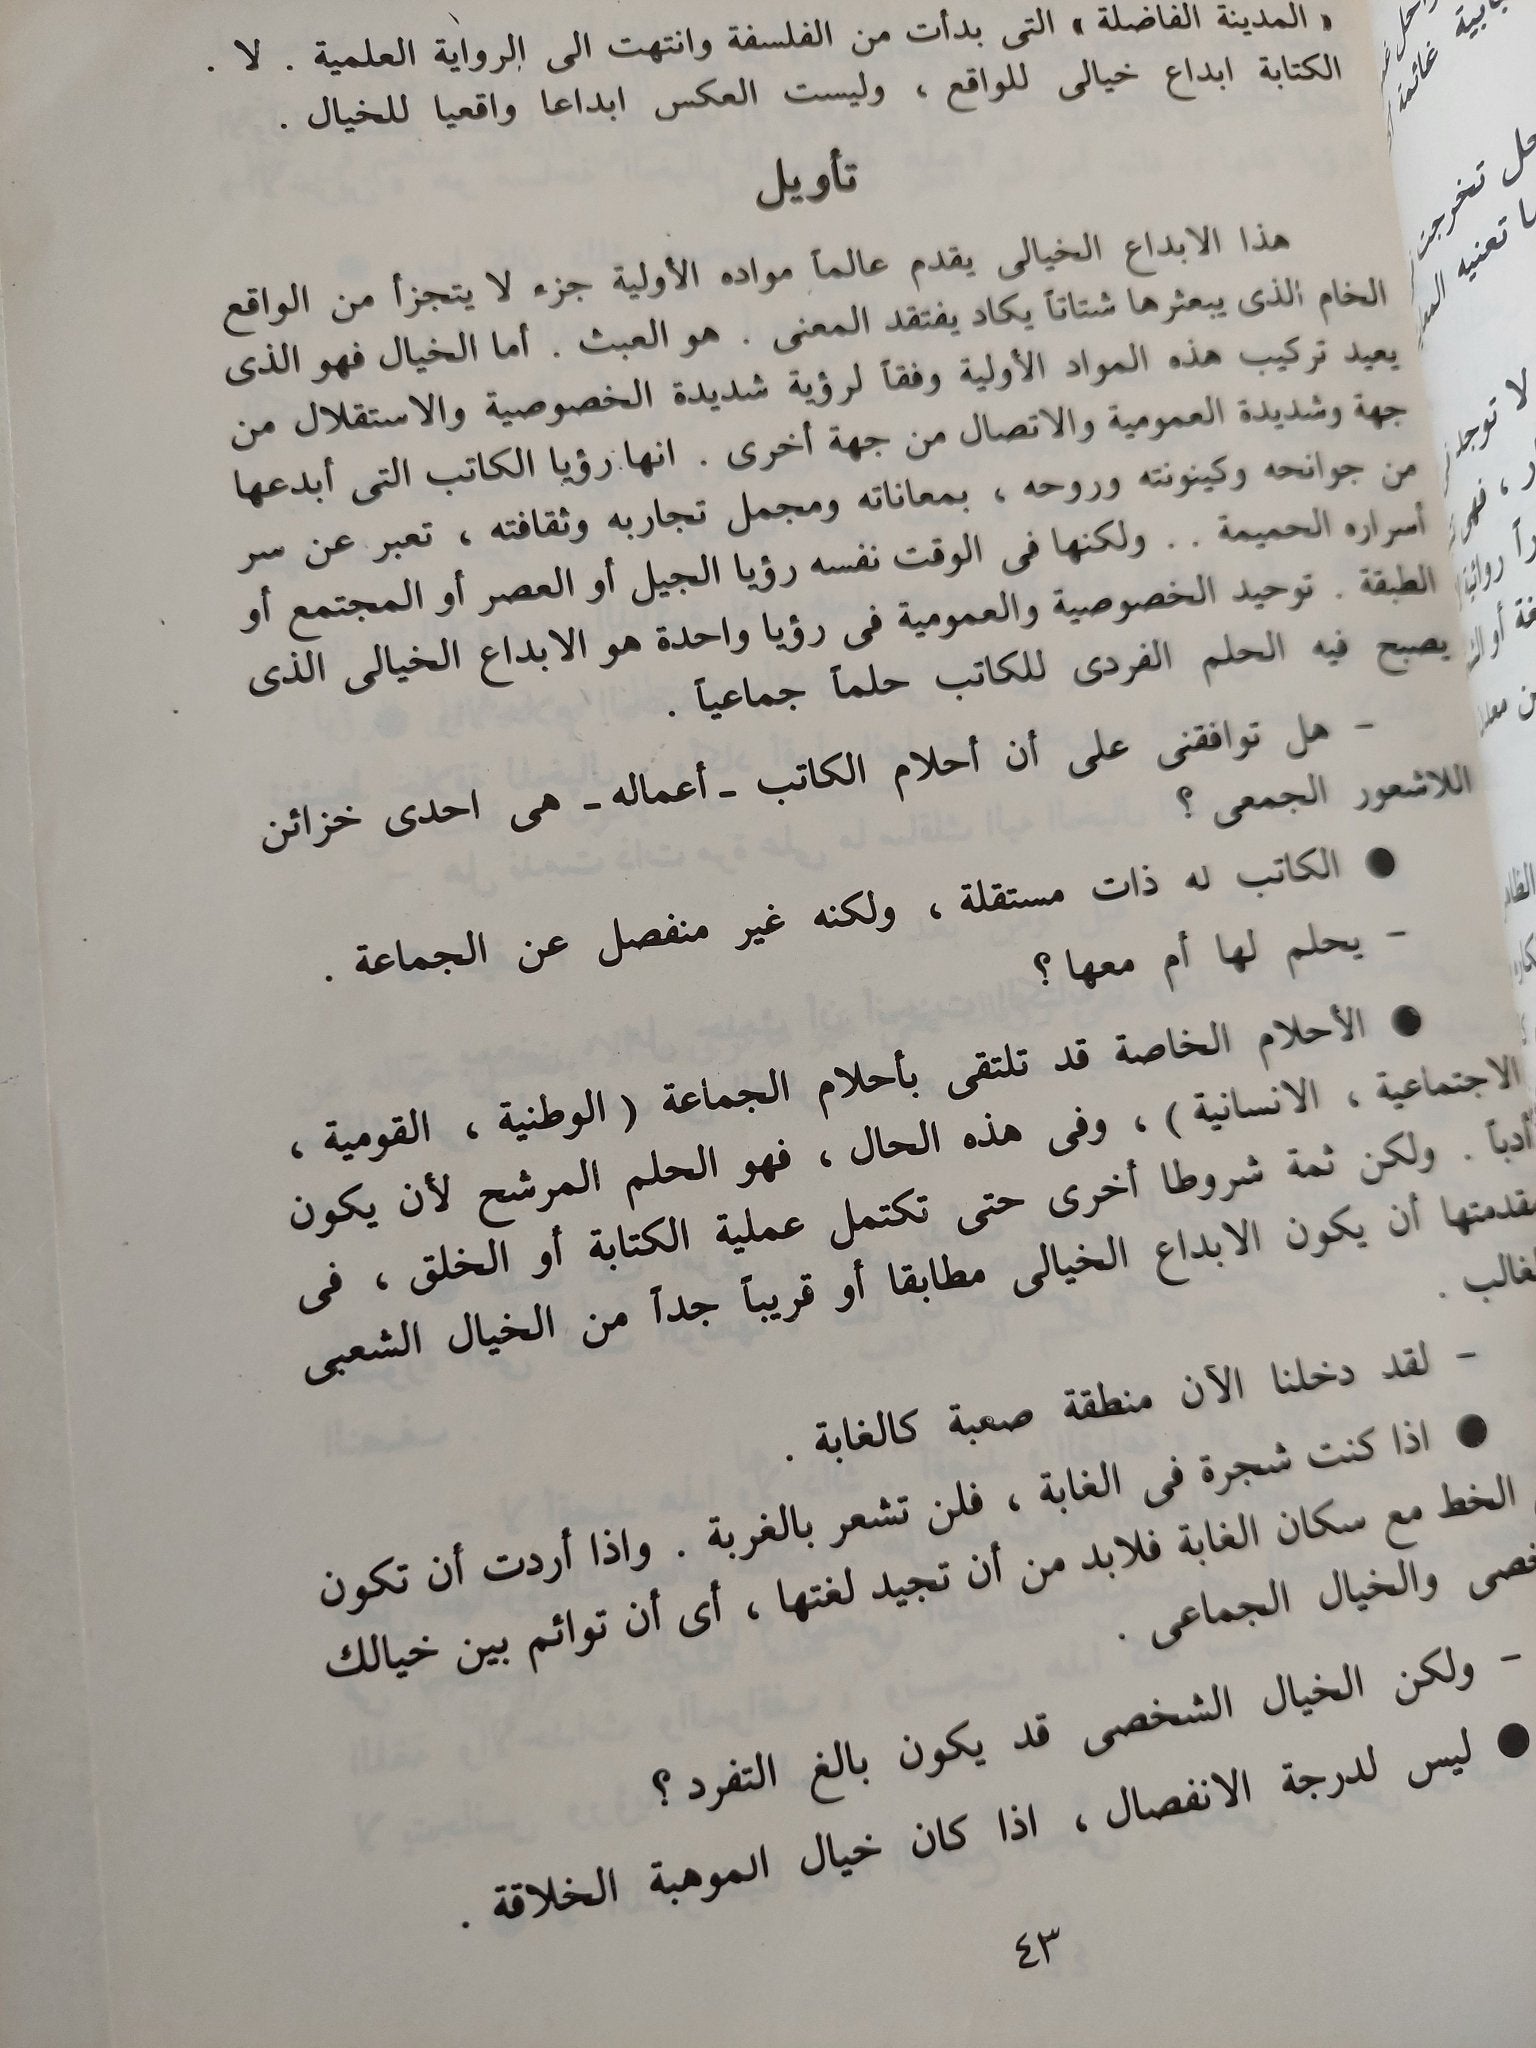 « المدينة الفاضلة » التى بدأت من الفلسفة وانتهت الى الرواية العلمية . لا .
الكتابة ابداع خيالى للواقع ، وليست العكس ابداعا واقعيا للخيال .
تأويل
هذا الابداع الخيالى يقدم عالماً مواده الأولية جزء لا يتجزأ من الواقع
الخام الذى يبعثرها شتاتاً يكاد يفتقد المعنى . هو العبث . أما الخيال فهو الذى
يعيد تركيب هذه المواد الأولية وفقاً لرؤية شديدة الخصوصية والاستقلال من
جهة وشديدة العمومية والاتصال من جهة أخرى . انها رؤيا الكاتب التى أبدعها
من جوانحه وكينونته وروحه ، بمعاناته ومجمل تجاربه وثقافته ، تعبر عن سر
أسراره الحميمة . . ولكنها فى الوقت نفسه رؤيا الجيل أو العصر أو المجتمع أو
الطبقة . توحيد الخصوصية والعمومية فى رؤيا واحدة هو الابداع الخيالى الذى
يصبح فيه الحلم الفردى للكاتب حلماً جماعياً .
– هل توافقنى على أن أحلام الكاتب – أعماله – هى احدى خزائن
اللاشعور الجمعى ؟
● الكاتب له ذات مستقلة ، ولكنه غير منفصل عن الجماعة .
– يحلم لها أم معها ؟
● الأحلام الخاصة قد تلتقى بأحلام الجماعة ( الوطنية ، القومية ،
الاجتماعية ، الانسانية ) ، وفى هذه الحال ، فهو الحلم المرشح لأن يكون
أدباً . ولكن ثمة شروطا أخرى حتى تكتمل عملية الكتابة أو الخلق ، فى
مقدمتها أن يكون الابداع الخيالى مطابقا أو قريباً جداً من الخيال الشعبى
الغالب .
– لقد دخلنا الآن منطقة صعبة كالغابة .
● اذا كنت شجرة فى الغابة ، فلن تشعر بالغربة . واذا أردت أن تكون
الخط مع سكان الغابة فلابد من أن تجيد لغتها ، أى أن توائم بين خيالك
والخيال الجماعى .
– ولكن الخيال الشخصى قد يكون بالغ التفرد ؟
● ليس لدرجة الانفصال ، اذا كان خيال الموهبة الخلاقة .
٤٣